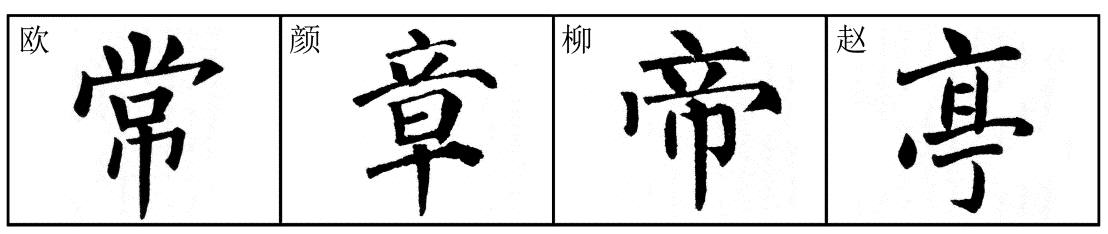 欧 常 颜 章 柳 帝 赵 亭